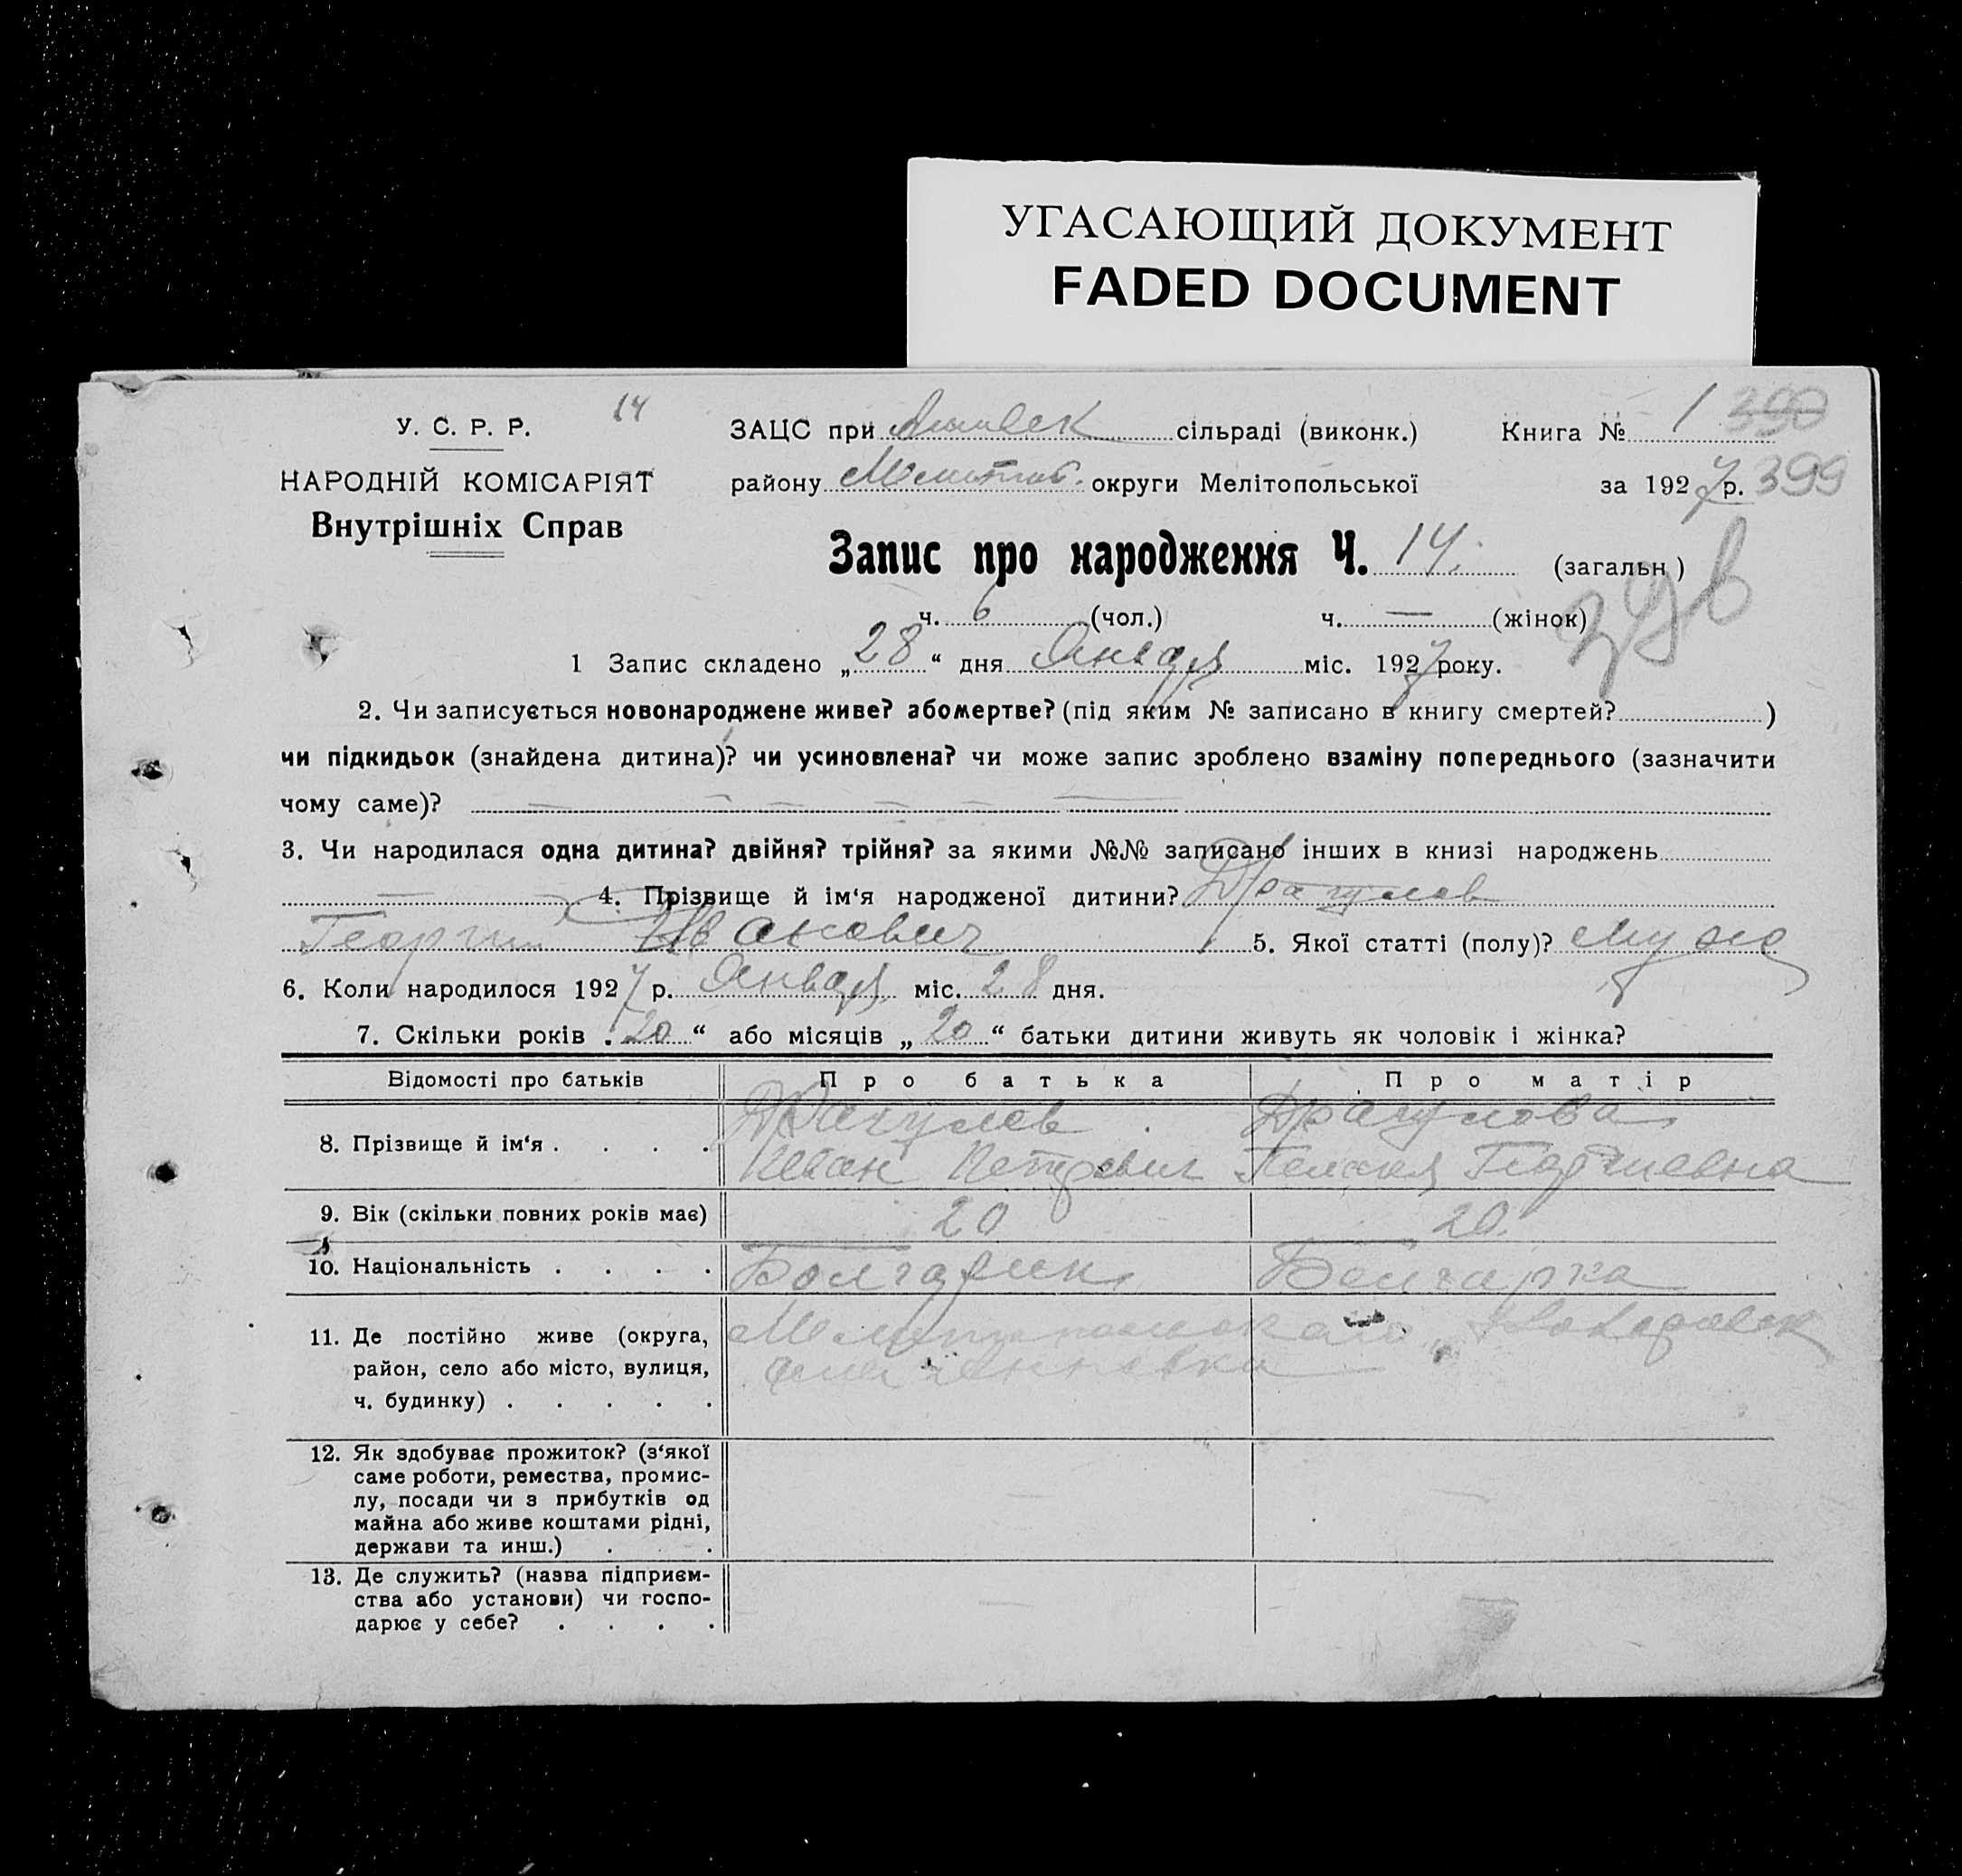 УГАСАЮЩИЙ ДОКУМЕНТ
FADED DOCUMENT
У. С. Р. Р. 14
ЗАЦС при сільраді (виконк.) Книга № 1 390
НАРОДНІЙ КОМІСАРІЯТ
району Мелитоп. округи Мелітопольської за 1927 р. 399
Внутрішніх Справ
Запис про народження Ч. 14. (загальн)
ч. 6 (чол.) ч. — (жінок)
1 Запис складено „28“ дня Января міс. 1927 року.
2. Чи записується новонароджене живе? або мертве? (під яким № записано в книгу смертей? )
чи підкидьок (знайдена дитина)? чи усиновлена? чи може запис зроблено взаміну попереднього (зазначити
чому саме)? — — — — — —
3. Чи народилася одна дитина? двійня? трійня? за якими №№ записано інших в книзі народжень
— 4. Прізвище й ім‘я народженої дитини? Драгулов
Георгий Иванович 5. Якої статті (полу)? муж
6. Коли народилося 1927 р. Января міс. 28 дня.
7. Скільки років „20“ або місяців „20“ батьки дитини живуть як чоловік і жінка?
Відомості про батьків Про батька Про матір
8. Прізвище й ім‘я . . . . Драгулов Драгулова
Иван Петрович Пелагея Георгиевна
9. Вік (скільки повних років має) 20 20.
10. Національність . . . . Болгарин Болгарка
11. Де постійно живе (округа, Мелитопольского
район, село або місто, вулиця,
ч. будинку) . . . . .
12. Як здобуває прожиток? (з‘якої
саме роботи, ремества, промис-
лу, посади чи з прибутків од
майна або живе коштами рідні,
держави та инш.) . . — —
13. Де служить? (назва підприєм-
ства або установи) чи госпо-
дарює у себе? . . . . —